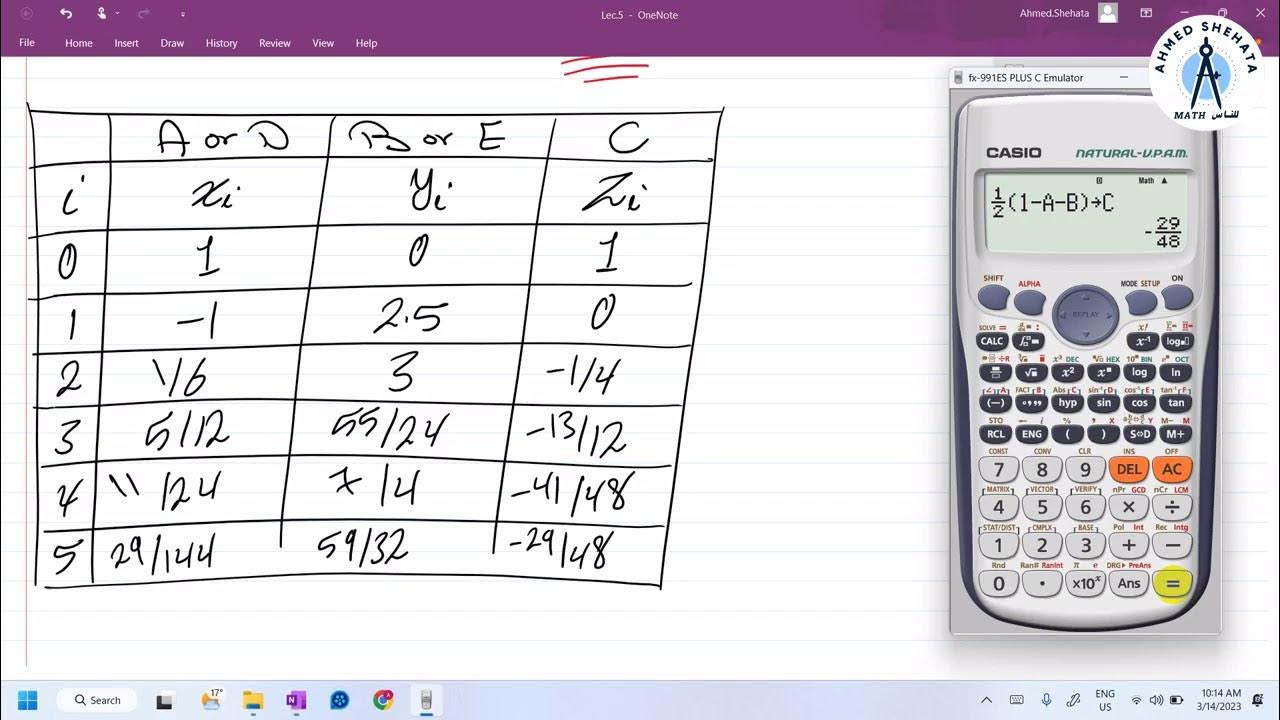 Lec.5 - OneNote
Ahmed.Shehata
File Home Insert Draw History Review View Help
AHMED SHEHATA
MATH للناس
fx-991ES PLUS C Emulator
A or D B or E C
i xi yi Zi
0 1 0 1
1 -1 2.5 0
2 1/6 3 -1/4
3 5/12 55/24 -13/12
4 11/24 7/4 -41/48
5 29/144 59/32 -29/48
CASIO NATURAL-V.P.A.M.
D Math ▲
1/2(1-A-B)→C
-29/48
SHIFT ALPHA MODE SETUP ON
REPLAY
SOLVE =
CALC x⁻¹ log
√ x² log ln
(-) hyp sin cos tan
STO
RCL ENG ( ) S⇔D M+
CONST CONV CLR INS OFF
7 8 9 DEL AC
[MATRIX] [VECTOR] [VERIFY] nPr GCD nCr LCM
4 5 6 × ÷
[STAT/DIST] [CMPLX] [BASE] Pol Int Rec Intg
1 2 3 + −
Rnd Ran# RanInt π e DRG▸ PreAns
0 . ×10ˣ Ans =
17°
Search
ENG
US
10:14 AM
3/14/2023